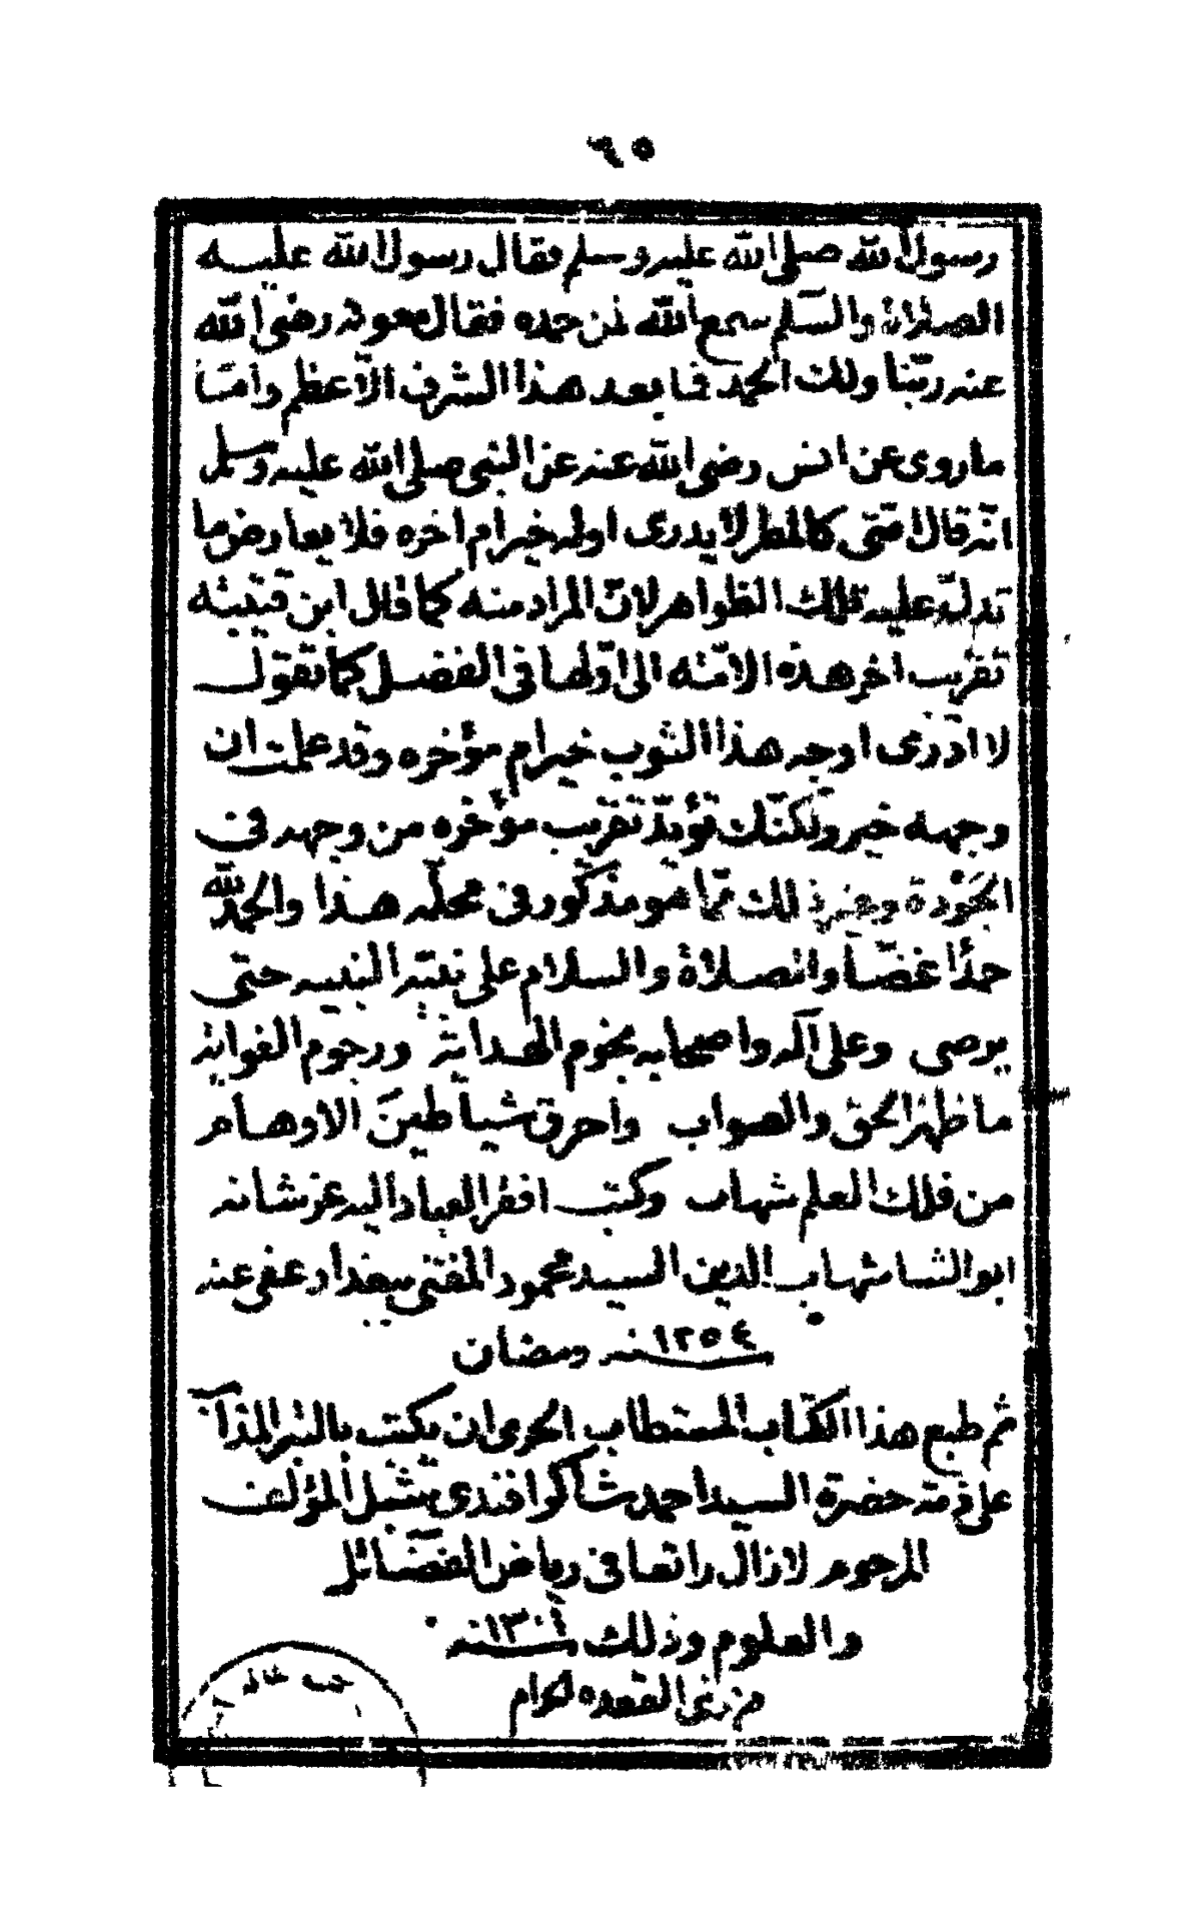 ٦٥
رسول الله صلى الله عليه وسلم فقال رسول الله عليه
الصلاة والسلم سمع الله لمن حمده فقال معوية رضى الله
عنه ربنا ولك الحمد فما بعد هذا الشرف الاعظم وامّا
ماروى عن انس رضى الله عنه عن النبى صلى الله عليه وسلم
انّه قال امتى كالمطر لا يدرى اوله خير ام اخره فلا يعارض ما
تدلّ عليه تلك الظواهر لانّ المراد منه كما قال ابن قتيبة
تقريب اخر هذه الامّة الى اوّلها فى الفضل كما تقول
لا ادرى اوجه هذا الثوب خير ام مؤخره وقد علمت ان
وجهه خير ولكنّك تؤيّد تقريب مؤخره من وجهه فى
الجَوْدة وغير ذلك ممّا هو مذكور فى محلّه هذا والحمد لله
حمدًا غضّا والصلاة والسلام على نبيّه النبيه حتى
يرضى وعلى آله واصحابه نجوم الهداية ورجوم الغواية
ما ظهر الحق والصواب واحرق شياطين الاوهام
من فلك العلم شهاب وكتب افقر العباد اليه عز شانه
ابو الثنا شهاب الدين السيد محمود المفتى ببغداد عفى عنه
١٢٥٤ سنه رمضان
ثم طبع هذا الكتاب المستطاب الحرى ان يكتب بالتبر المذاب
على ذمة حضرة السيد احمد شاكر افندى شبل المؤلف
المرحوم لازال راتعا فى رياض الفضائل
والعلوم وذلك سنه ١٣٠١
من ذى القعده الحرام